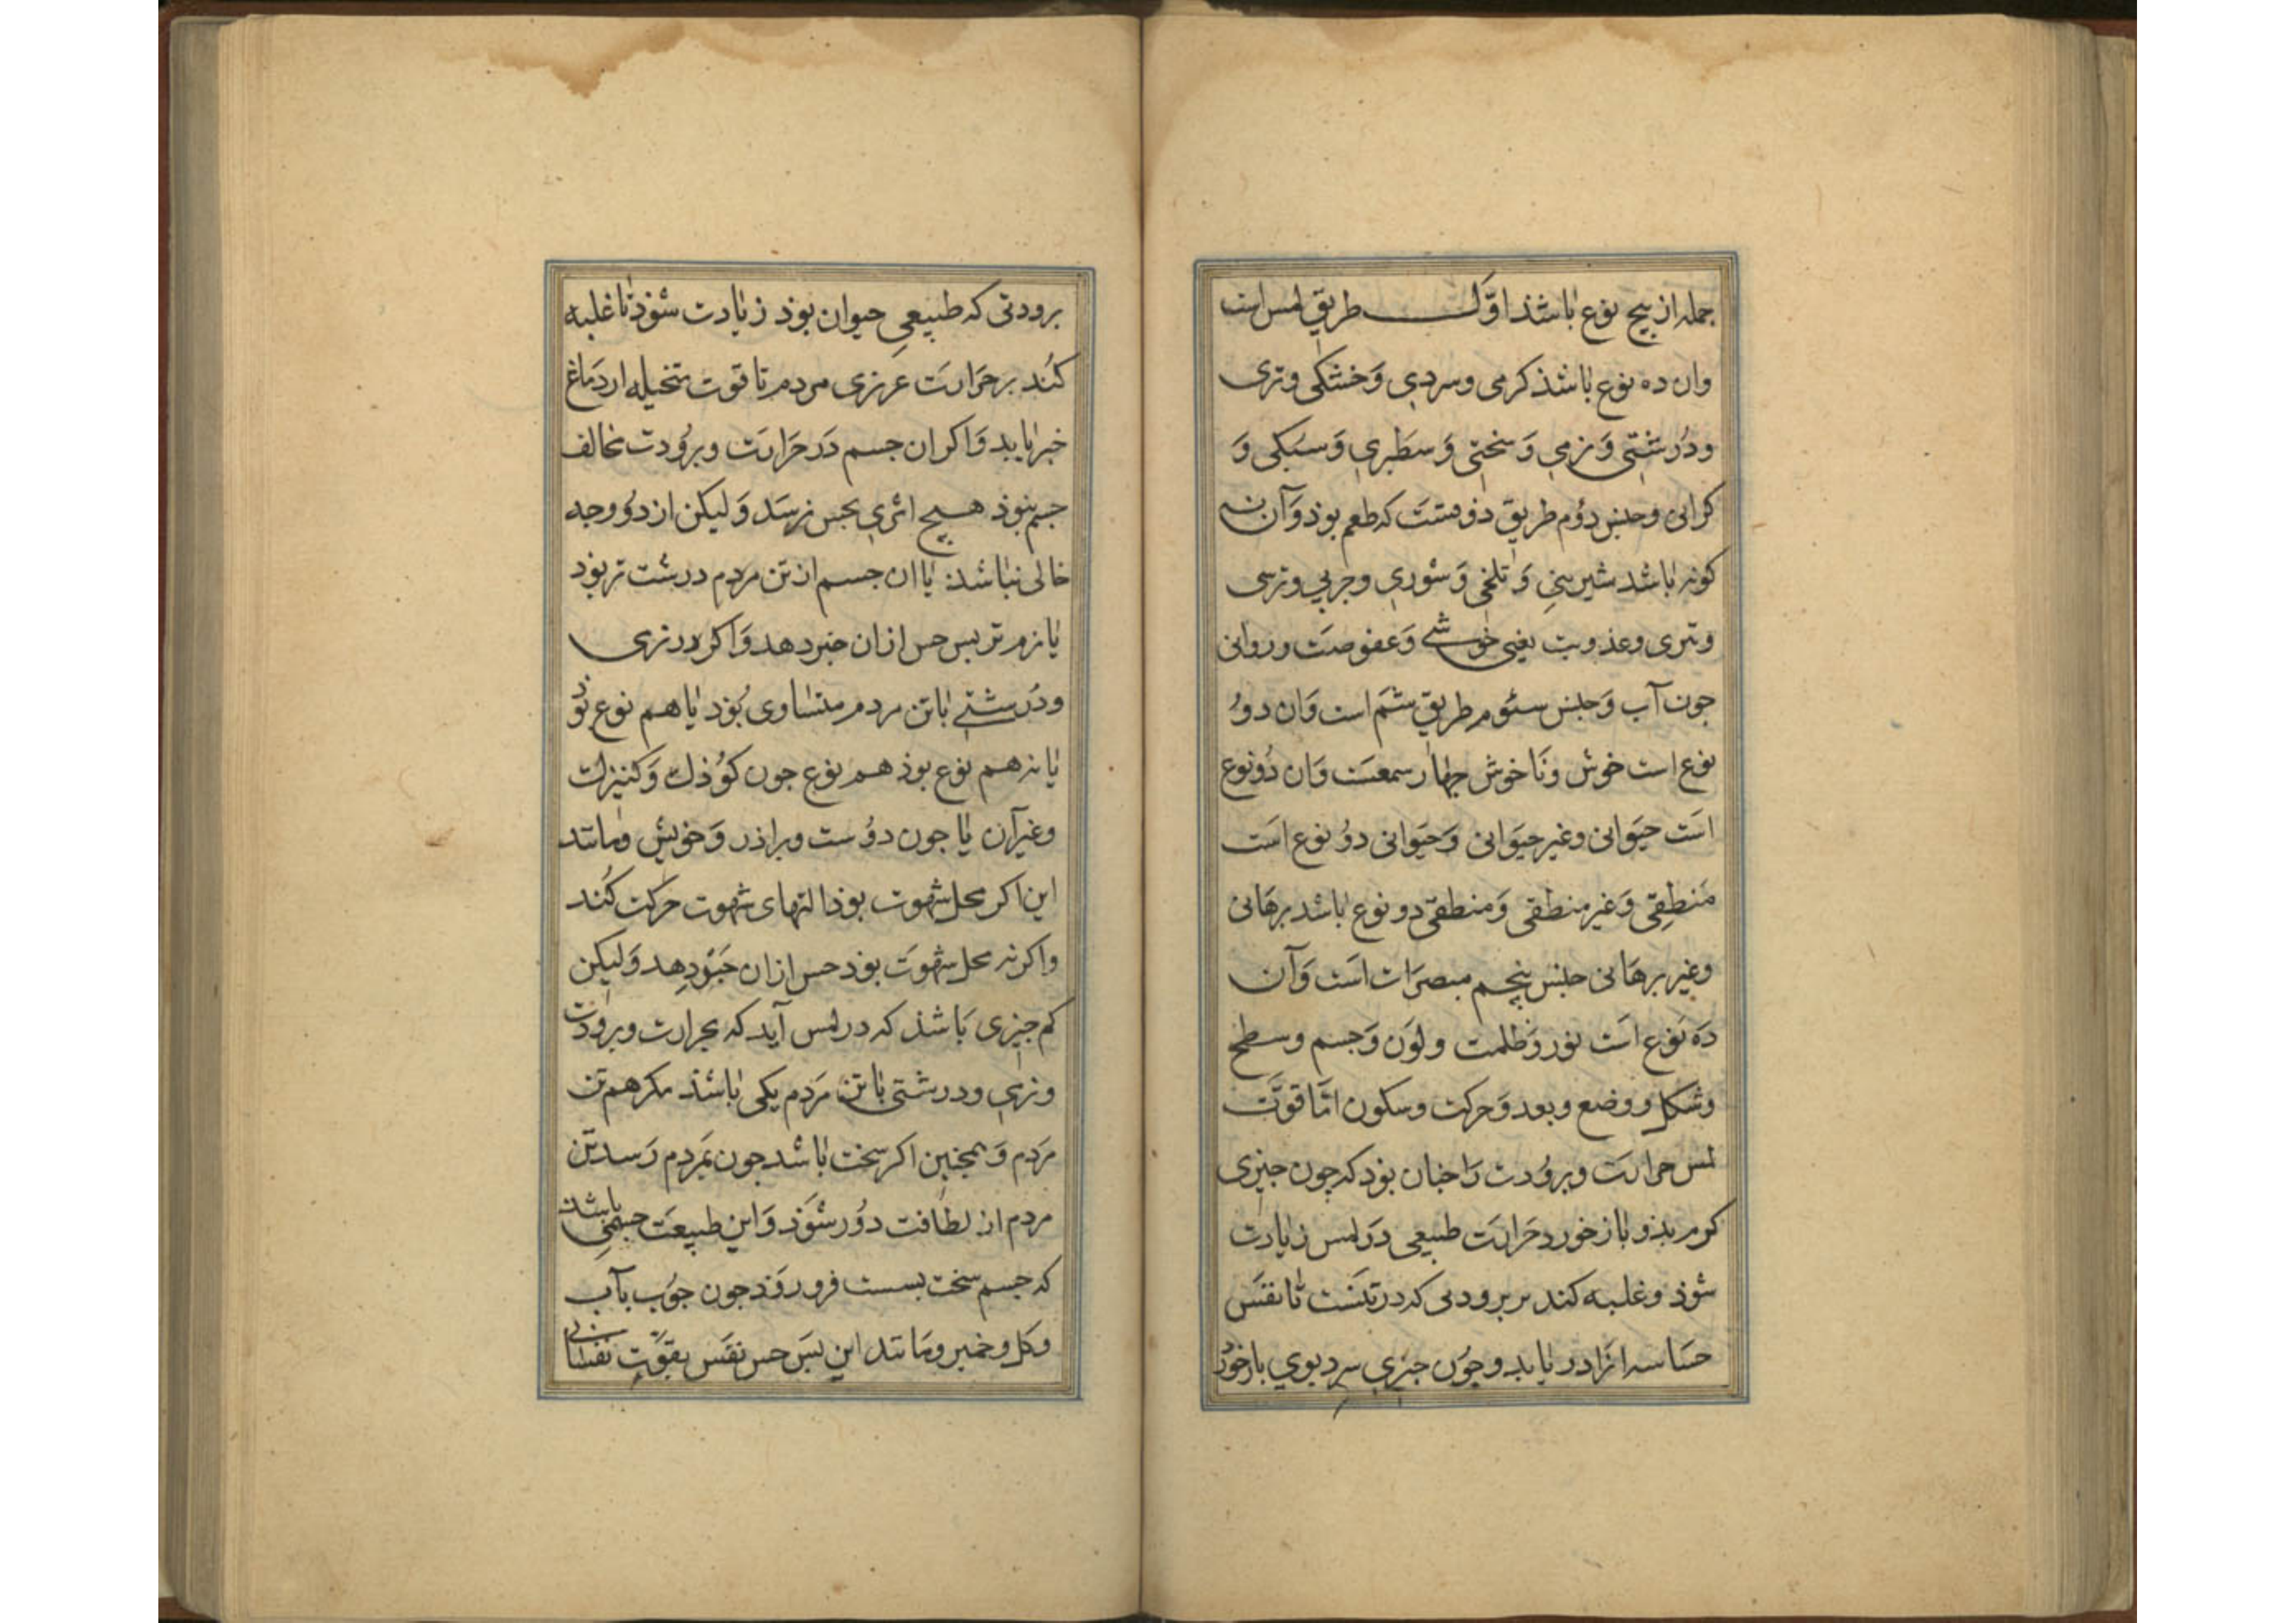 جمله از پنج نوع باشذ اوّل طریق لمس است
وان ده نوع باشذ کرمی وسردی وَخشکی وتری
ودُرشتی وَنرمی وَسختی وَسطبری وَسبکی وَ
کرانی وجنس دوُم طریق ذوقست که طعم بوذ وَآن نه
کونه باشد شیرینی وَتلخی وَشوری وچربی وترسی
وتیزی وعذوبت یعنی خوشی وَعفوصت وروانی
جون آب وَجنس سئوم طریق شم است وَان دوُ
نوع است خوش ونَاخوش جهار سمعست وَان دُونوع
است حیَوانی وغیر حیَوانی وَحیَوانی دوُ نوع است
مَنطِقی وَغیر منطقی وَمنطقی دو نوع باشد برهَانی
وغیر برهَانی جنس پنجم مبصرَات است وَآن
دَه نَوع است نور وَظلمت ولوَن وَجسم وسطح
وشکل ووضع وبعد وَحرکت وسکون امّا قوّت
لمس حرارَت وبروُدت رَا جنان بوَد که چون جیزی
کرم بذو باز خورد حَرارَت طبیعی دَر لمس زیادت
شوذ وغلبه کند بر برودتی که در تنَست تا نفَس
حسَاسه انرَا دریابد وجوُن جیزی سرد بوی بازخوُرد
برودتی که طبیعیِ حیوان بوذ زیادت شوَذ تا غلبه
کنُد بر حرَارَت عریزی مردم تا قوت متخیله از دَماغ
خبر یابد وَاکر ان جسم دَر حَرارَت وبروُدت مخالف
جسم نبوذ هیچ اثری بحس نرسَد وَلیکن از دوُ وجه
خالی نباشذ یا ان جسم از تن مردم درشت تر بوَد
یا نرم تر بس حس ازان خبر دهد وَاکر در نرمی
ودُرشتی باتن مردم متساوی بُوَد یا هم نوع بوَذ
یا نه هم نوع بوذ هم نوع جون کوُذک وَکنیزک
وغیرآن یا جون دوُست وبراذر وَخویش ومانند
این اکر محل شهوت بوذ التهای شهوت حرکت کُند
واکر نه محل شهوَت بوَد حس ازان خبَر دِهد وَلیکن
کم جیزی بَاشذ که در لمس آید که بحرارت وبرودت
ونرمی ودرشتی باتن مَردم یکی باشذ مکر هم تن
مَردم وَهمچنین اکر سخت باشد جون بمَردم رَسد تن
مردم از لطافت دوُر شوَذ وَاین طبیعَت جسمی باشذ
که جسم سخت بسست فرو روَذ جون جوُب بآب
وکل وخمیر ومَانند این بسَ حس نفَس بقوَّت نفسَانی